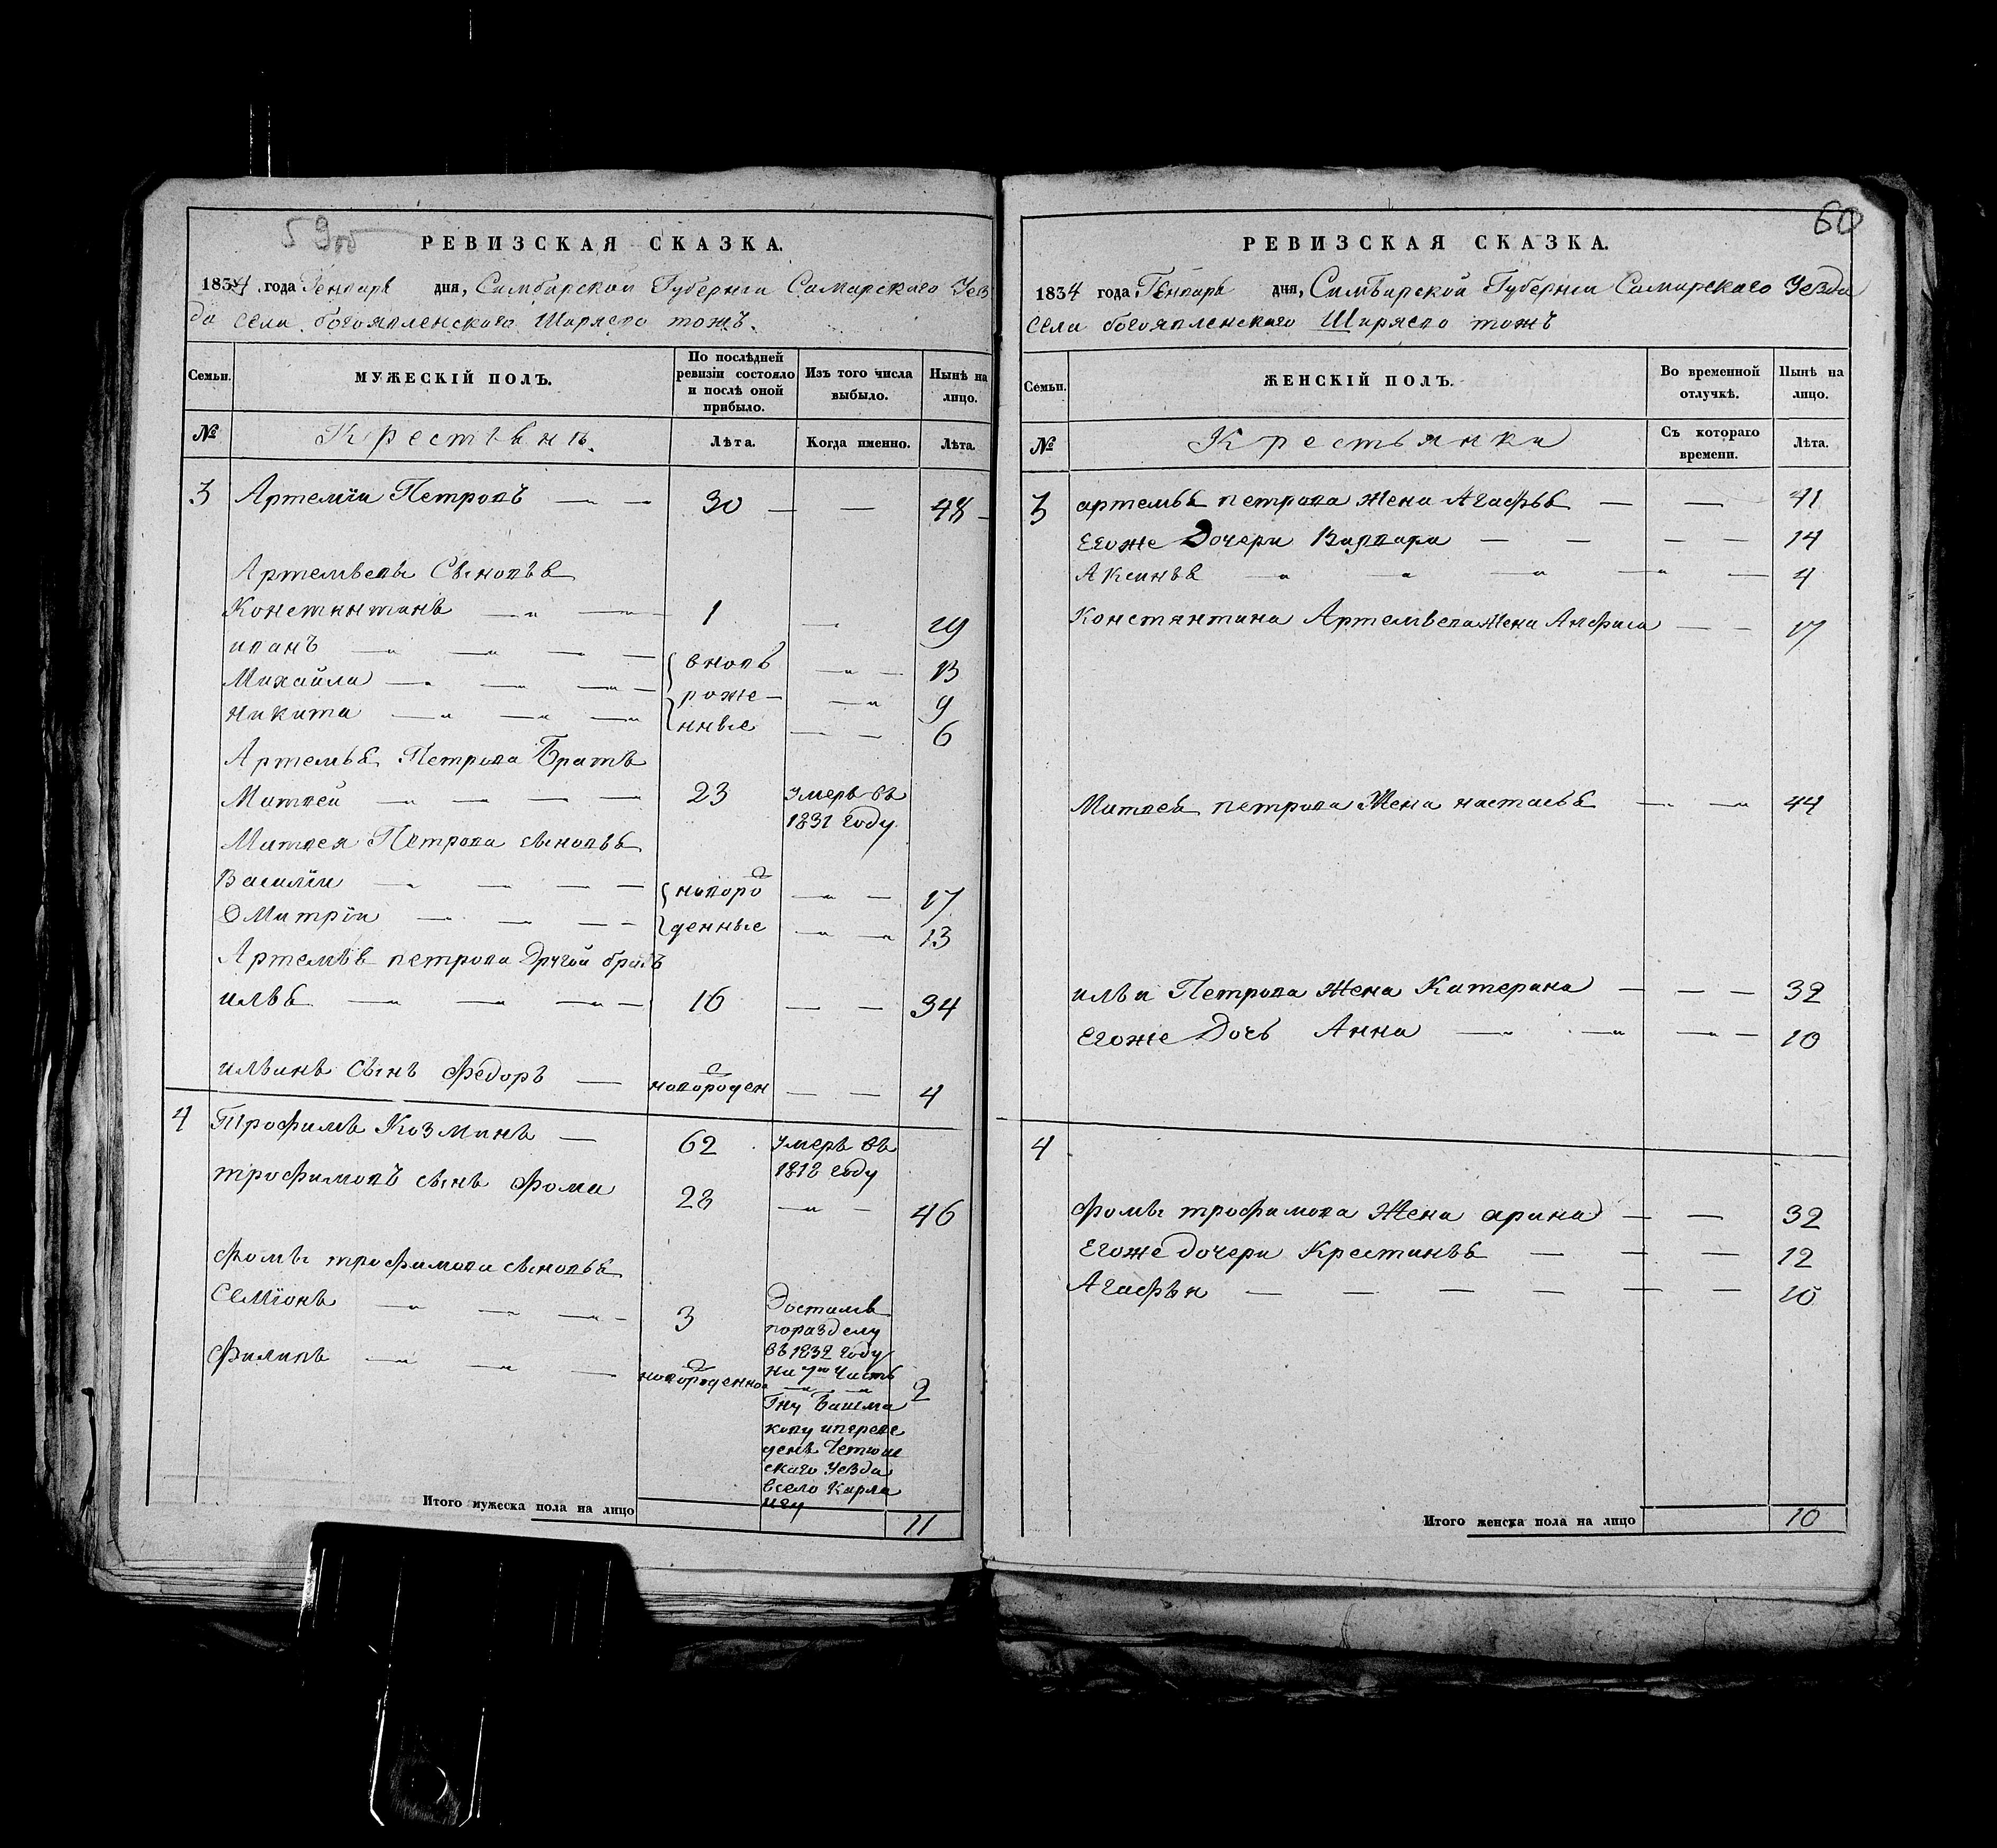 59 об
РЕВИЗСКАЯ СКАЗКА.
1834 года Генваря дня, Симбирской Губернии Самарского Уез
да Села богоявленского Ширяево тожъ.
Семьи.
МУЖЕСКІЙ ПОЛЪ.
По послѣдней ревизіи состояло и послѣ оной прибыло.
Изъ того числа выбыло.
Нынѣ на лицо.
№
Крестьянъ
Лѣта.
Когда именно.
Лѣта.
3 Артемiй Петровъ 30 48
Артемьевы Сыновья
Константинъ 1 19
иванъ вновь 13
Михайла роже- 9
никита нные 6
Артемья Петрова Братъ
Матвей 23 умеръ въ
1831 году
Матвея Петрова сыновья
Василiй новоро 17
Дмитрiй денные 13
Артемья петрова другой братъ
илья 16 34
ильинъ Сынъ Федоръ новороден 4
4 Трофимъ Козминъ 62 умеръ въ
1818 году
трофимовъ сынъ фома 28 46
фомы трофимова сыновья
Семiонъ 3 Достался
поразделу
въ 1832 году
Филипъ новорожденно 2 на 7ю Часть
Гну Башма
кову ипереве
денъ Четюш
скаго Уезда
всело Карла
нгу
Итого мужеска пола на лицо 11
60
РЕВИЗСКАЯ СКАЗКА.
1834 года Генваря дня, Симбирской Губернии Самарскаго Уезда
Села богоявленскаго Ширяево тожъ
Семьи.
ЖЕНСКІЙ ПОЛЪ.
Во временной отлучкѣ.
Нынѣ на лицо.
№
Крестьянки
Съ котораго времени.
Лѣта.
3 артемья петрова жена Агафья 41
Егоже Дочери Варвара 14
Аксинья 4
Константина Артемьева жена Анфиса 17
Матвея петрова Жена настасья 44
ильи Петрова жена Катерина 32
Егоже Дочь Анна 10
4
фомы трофимова Жена арина 32
Егоже дочери Крестинья 12
Агафья 10
Итого женска пола на лицо 10